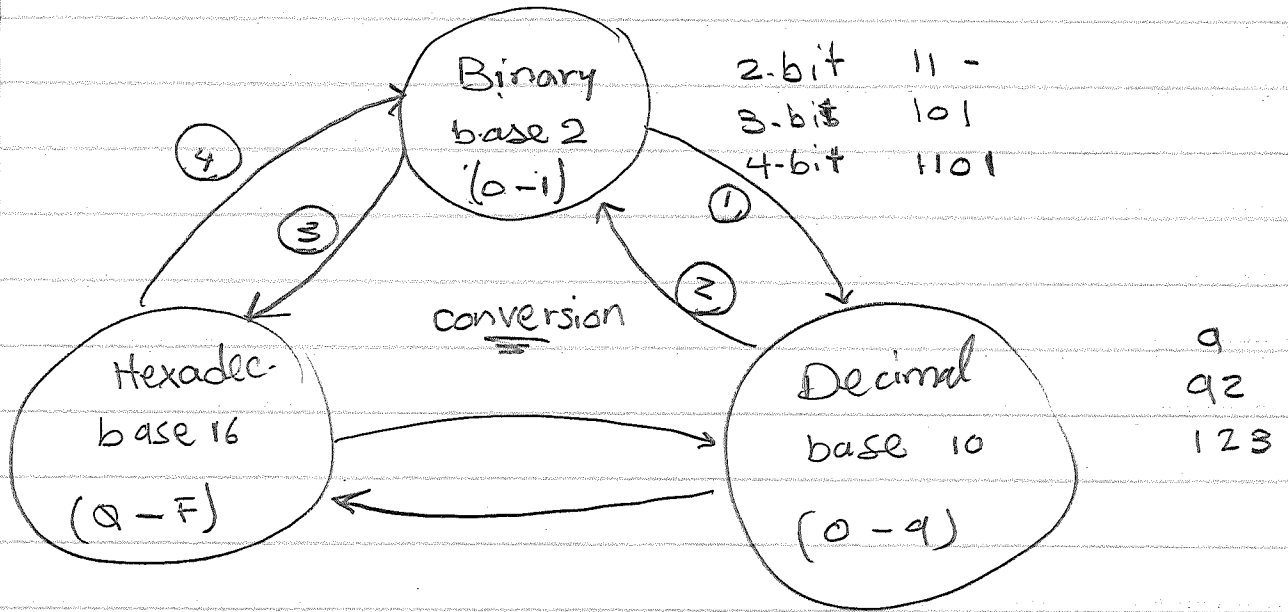 Binary
base 2
(0-1)
2-bit 11 -
3-bit 101
4-bit 1101
4
3
1
2
conversion
Hexadec.
base 16
(0-F)
Decimal
base 10
(0-9)
9
92
123